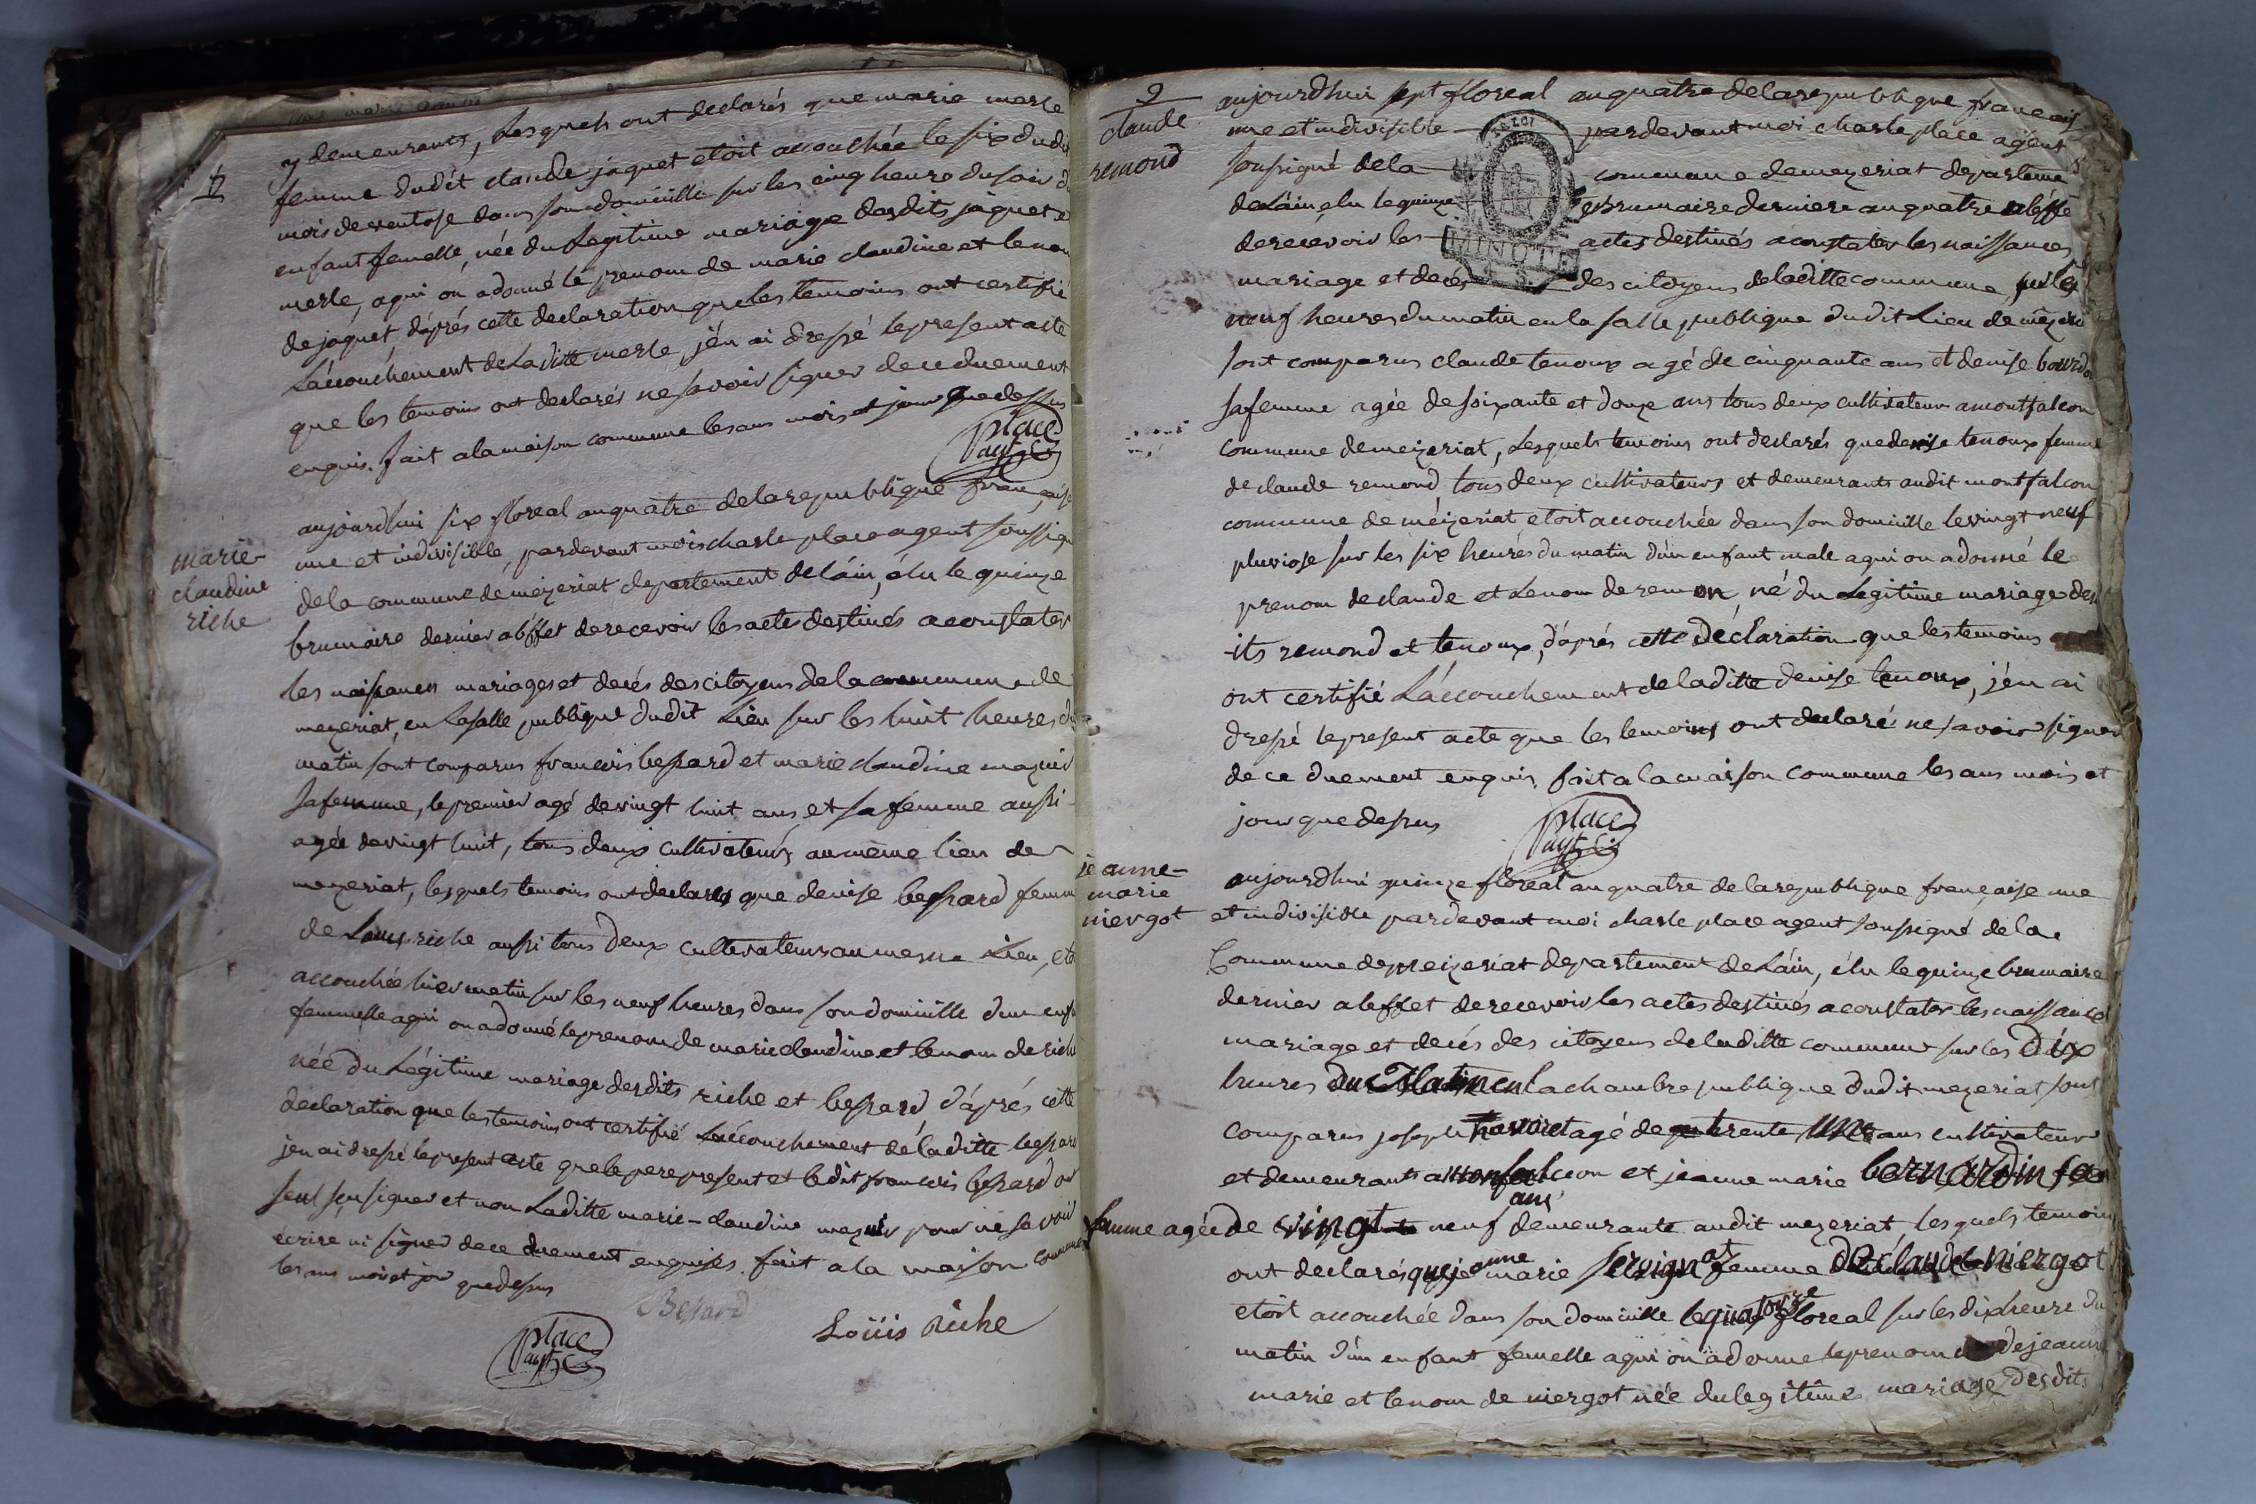 y demeurants, Lesquels ont declarés que marie merle
femme dudit claude jaquet etoit accouchée le six dudit
mois de ventose dans son domicille sur les cinq heure du soir
enfant femelle, née du Legitime mariage desdits jaquet et
merle, a qui on a donné le prenom de marie claudine et le nom
de jaquet, d'aprés cette declaration que les temoins ont certifié
L'accouchement de Laditte merle, j'en ai dressé le present acte
que les temoins ont declarés ne savoir signer de ce duement
enquis. fait a la maison commune les ans mois et jour que dessus
place
agt
marie-
claudine
riche
aujourdhui six floreal an quatre de la republique française
une et indivisible, pardevant mois charle place agent soussigné
de la commune de méizeriat departement de L'ain, élu le quinze
brumaire dernier a l'effet de recevoir les actes destinés a constater
les naissances mariages et decés des citoyens de la commune de
mezeriat, en La salle publique dudit Lieu sur les huit heures du
matin sont comparus francois bessard et marie claudine mazuir
sa femme, le premier agé de vingt huit ans et sa femme aussi
agée de vingt huit, tous deux cultivateurs au même lieu de
mezeriat, lesquels temoins ont declarés que denise bessard femme
de Louis riche aussi tous deux cultivateurs au mesme Lieu, etoit
accouchée hier matin sur les neuf heures dans son domicille d'un enfant
femmelle a qui on a donné le prenom de marie claudine et le nom de riche
née du Légitime mariage desdits riche et bessard, d'aprés cette
declaration que les temoins ont certifié L'accouchement de laditte bessard
j'en ai dressé le present acte que le pere present et ledit francois bessard ont
seul sçu signer et non Laditte marie-claudine mazuir pour ne savoir
écrire ni signer de ce duement enquises. fait a la maison commune
les ans mois et jour que dessus
Bessard
Loüis Riche
place
agt
9
claude
remond
aujourdhui sept floreal an quatre de la republique francais
une et indivisible pardevant moi charle place agent
soussigné de la commune de mezeriat departeme
de L'ain, élu le quinze brumaire derniere an quatre a l'effé
de recevoir les actes destinés a constater les naissances
mariage et decés des citoyens de laditte commune, sur les
MINUTE
neuf heures du matin en la salle publique dudit Lieu de mézeria
sont comparus claude tenoux agé de cinquante ans et denise bourdon
sa femme agée de soixante et douze ans tous deux cultivateurs a montfalcon
commune de meizeriat, Lesquels temoins ont declarés que denise tenoux femme
de claude remond, tous deux cultivateurs et demeurants audit montfalcon
commune de méizeriat etoit accouchée dans son domicille le vingt neuf
pluviose sur les six heurés du matin d'un enfant male a qui on a donné le
prenom de claude et Le nom de remon, né du Legitime mariage des
-its remond et tenoux, d'aprés cette déclaration que les temoins
ont certifié L'accouchement de laditte denise tenoux, j'en ai
dressé le present acte que les temoins ont declaré ne savoir signer
de ce duement enquis, fait a la maison commune les ans mois et
jour que dessus
place
agt
jeanne-
marie
niergot
aujourdhui quinze floreal an quatre de la republique française une
et indivisible pardevant moi charle place agent soussigné de la
Commune de meizeriat departement de L'ain, élu le quinze brumaire
dernier a l'effet de recevoir les actes destinés a constater les naissances
mariage et decés des citoyens de laditte commune sur les dix
heures du Matin en la chambre publique dudit mezeriat sont
comparus joseph agé de trente une ans cultivateur
et demeurant a monfalcon et jeanne marie bernardin sa
femme agée de vingt neuf ans demeurante audit mezeriat lesquels temoin
ont declarés que jeanne marie servignat femme de claude niergot
etoit accouchée dans son domicille le quatorze floreal sur les dix heure du
matin d'un enfant femelle a qui on a donne le prenom de jeanne
marie et le nom de niergot née du legitime mariage desdits